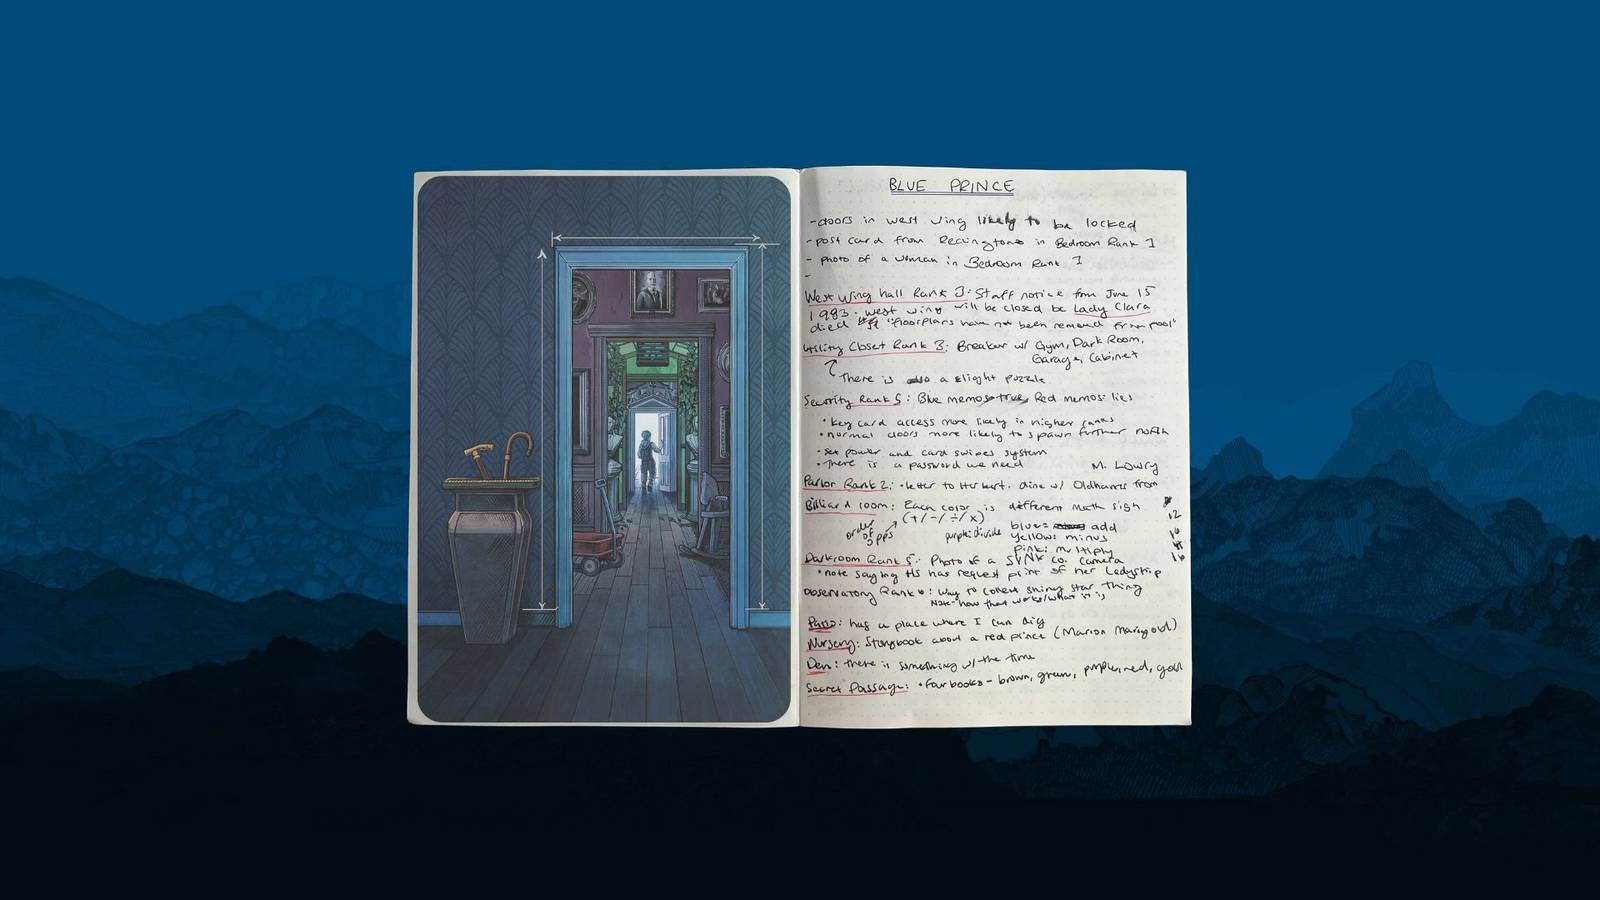 BLUE PRINCE
- doors in west wing likely to be locked
- post card from in Bedroom Rank 1
- photo of a woman in Bedroom Rank 1
-
West Wing hall Rank 3: Staff notice from June 15
1983. west wing will be closed be Lady Clara
died "floorplans have not been removed from pool"
Utility Closet Rank 3: Breaker w/ Gym, Dark Room,
Garage, Cabinet
There is a slight puzzle
Security Rank 5: Blue memos true, Red memos lies
• key card access more likely in higher ranks
• normal doors more likely to spawn further north
• set power and card swipes system
• There is a password we need
M. Lowry
Parlor Rank 2: • letter to Herbert. dine w/ Oldhams from
Billiard room: Each color is different math sign
(+/-/÷/x)
order of opps
purple: divide
blue = add
yellow: minus
pink: multiply
12
Darkroom Rank 5: Photo of a SVNK co. camera
• note saying HS has request print of her Ladyship
Observatory Rank 6: Way to collect shiny star thing
Note how that works/what it is
Patio: has a place where I can dig
Nursery: Storybook about a red prince (Marion Marigold)
Den: there is something w/ the time
Secret Passage: • four books - brown, green, purple, red, gold